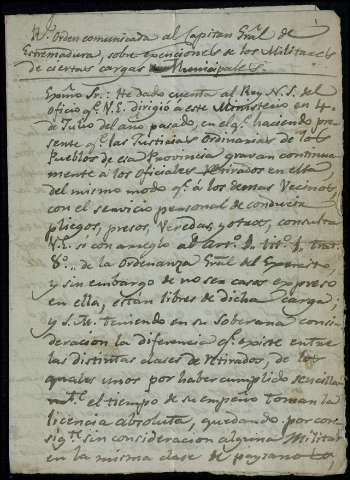 Rl. orden comunicada al Capitan Gral. de
Estremadura, sobre exenciones de los Militares
de ciertas cargas Municipales.
Exmo. Sr.: He dado cuenta al Rey N. S. del
oficio q.e V.E. dirigió a este Ministerio en 4
de Julio del año pasado, en el q.e haciendo pre-
sente q.e las Justicias Ordinarias de los
Pueblos de esa Provincia gravan continua
mente à los oficiales Retirados en ella
del mismo modo q.e à los demas Vecinos
con el servicio personal de conducir
pliegos, presos, Veredas, y otros, consulta
V.E. si con arreglo al Art. 1. tit.o 1. trat.
8.o de la Ordenanza Gral. del Exercito,
y sin embargo de no ser casos expreso
en ella, estan libres de dicha carga;
y S. M. teniendo en su Soberana consi-
deracion la diferencia q.e existe entre
las distintas clases de retirados, de los
quales unos por haber cumplido sencilla
m.te el tiempo de su empeño toman la
licencia absoluta, quedando por con-
sig.te sin consideracion alguna Militar
en la misma clase de paysanos